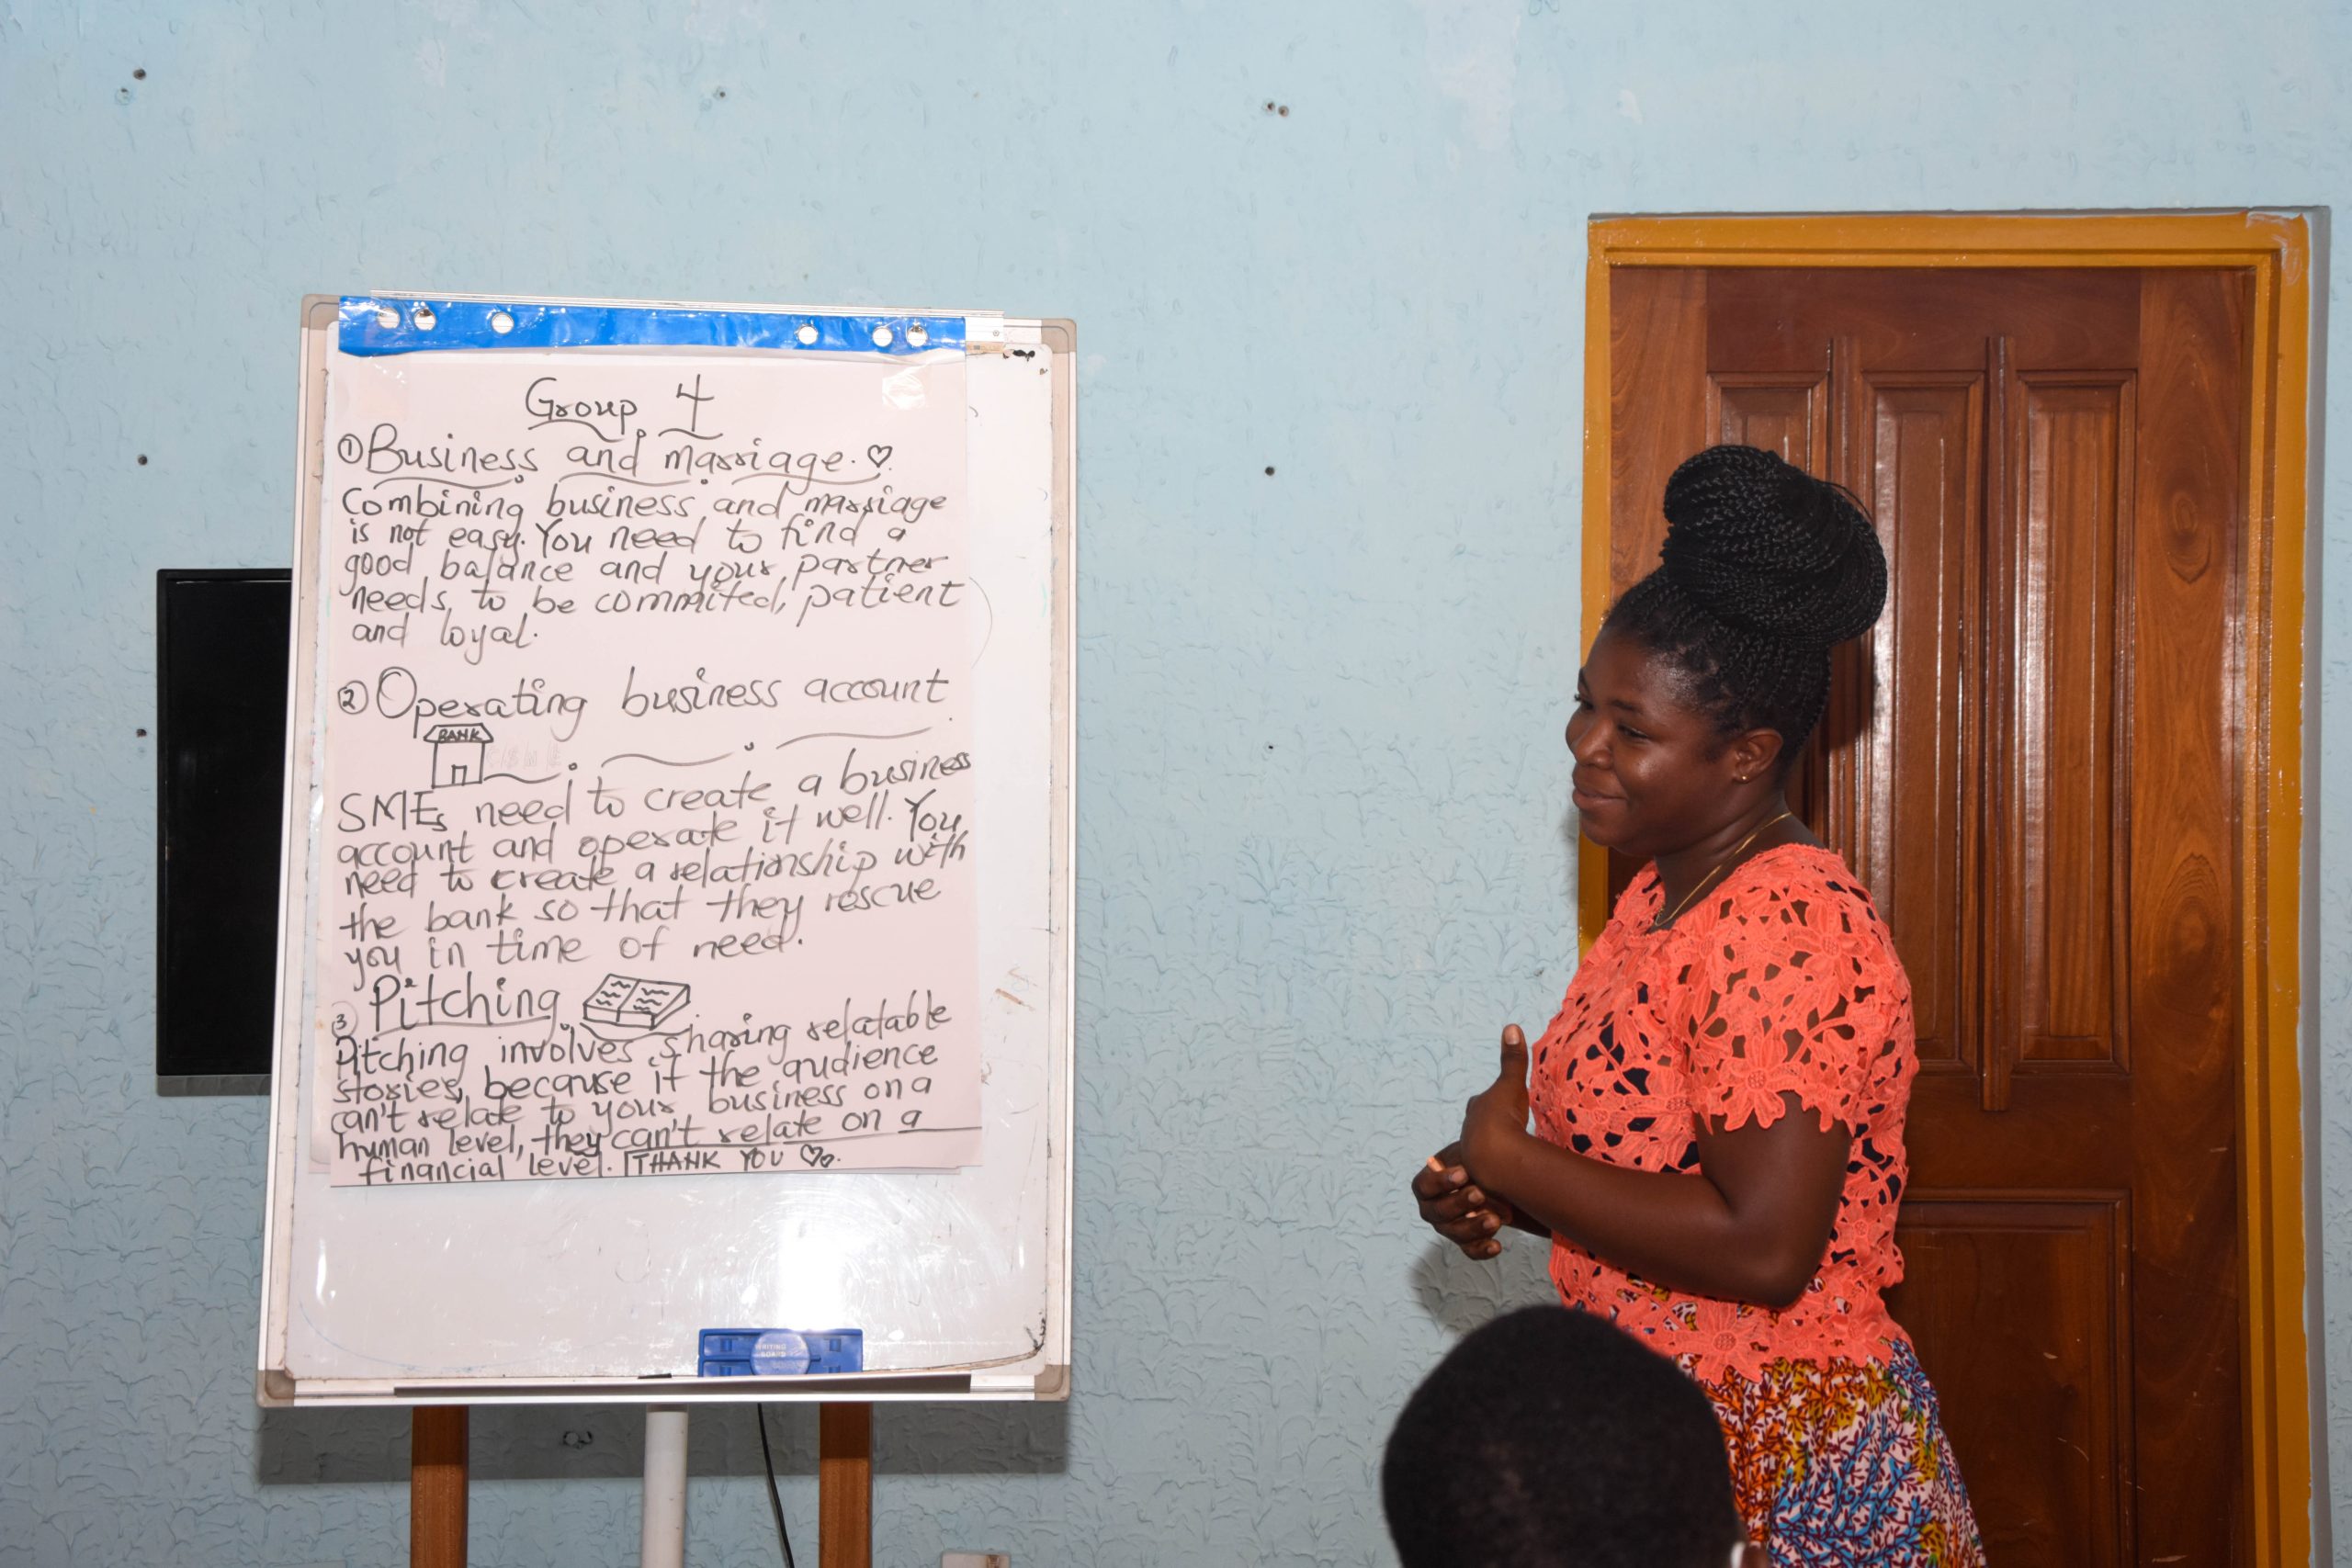 Group 4
① Business and marriage. ♡
Combining business and marriage
is not easy. You need to find a
good balance and your partner
needs to be commited, patient
and loyal.
② Operating business account
BANK
SMEs need to create a business
account and operate it well. You
need to create a relationship with
the bank so that they rescue
you in time of need.
③ Pitching
Pitching involves sharing relatable
stories, because if the audience
can't relate to your business on a
human level, they can't relate on a
financial level. THANK YOU ♡♡.
WRITING
BOARD